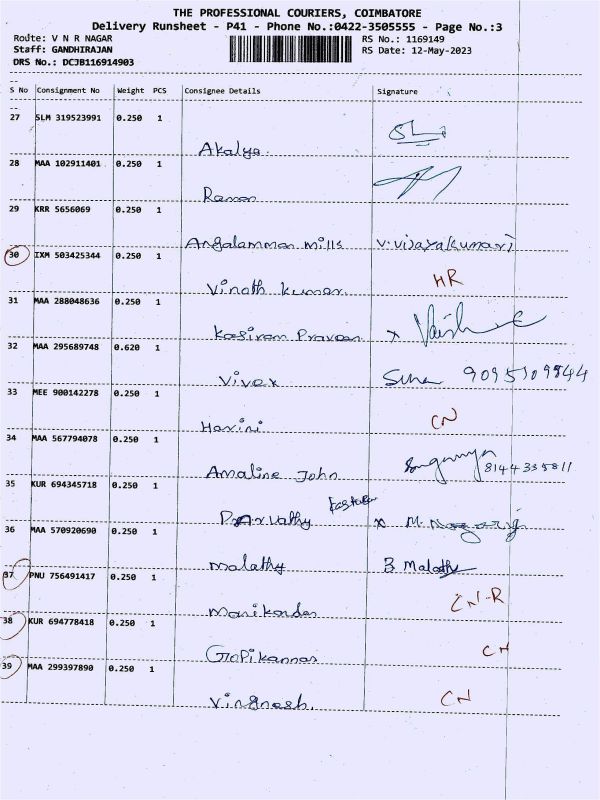 THE PROFESSIONAL COURIERS, COIMBATORE
Delivery Runsheet - P41 - Phone No.:0422-3505555 - Page No.:3
Route: V N R NAGAR RS No.: 1169149
Staff: GANDHIRAJAN RS Date: 12-May-2023
DRS No.: DCJB116914903
S No Consignment No Weight PCS Consignee Details Signature
27 SLM 319523991 0.250 1
Akalya.
28 MAA 102911401 0.250 1
Raman
29 KRR 5656069 0.250 1
Angalamman mills V. Vijayakumari
30 IXM 503425344 0.250 1
Vinoth kumar. HR
31 MAA 288048636 0.250 1
Kasiram Praveen x
32 MAA 295689748 0.620 1
Vivek
33 MEE 900142278 0.250 1
Harini CN
34 MAA 567794078 0.250 1
Amaline John 8144335811
35 KUR 694345718 0.250 1
Parvathy x
36 MAA 570920690 0.250 1
malathy B Malathy
37 PNU 756491417 0.250 1
Manikandan CN-R
38 KUR 694778418 0.250 1
Gopikannan CN
39 MAA 299397890 0.250 1
Vingnesh. CN